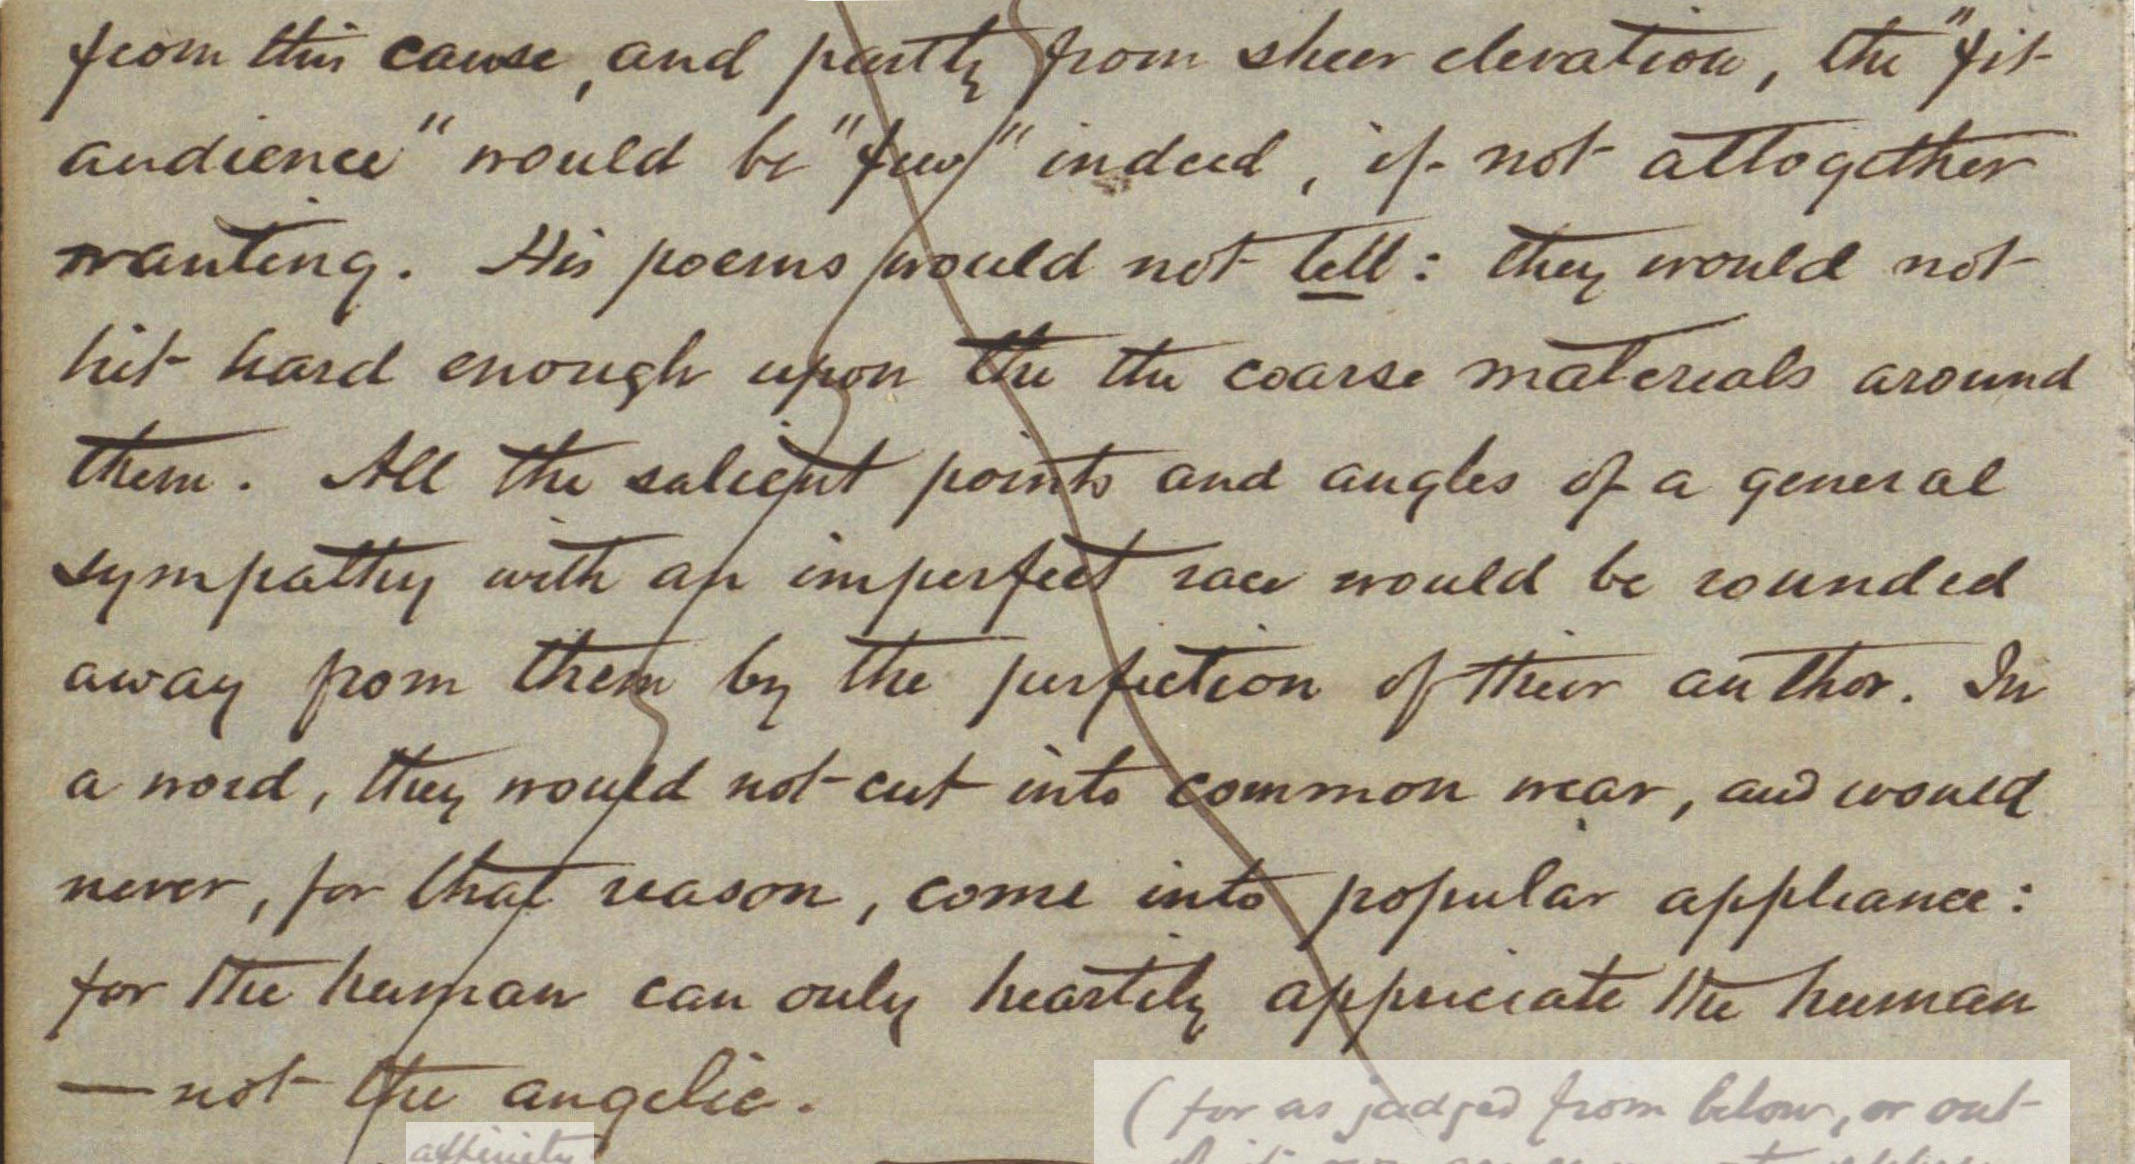 from this cause, and partly from sheer elevation, the "fit
audience" would be "few" indeed, if not altogether
wanting. His poems would not tell: they would not
hit hard enough upon the the coarse materials around
them. All the salient points and angles of a general
sympathy with an imperfect race would be rounded
away from them by the perfection of their author. In
a word, they would not cut into common wear, and would
never, for that reason, come into popular appliance:
for the human can only heartily appreciate the human
— not the angelic.
(for as judged from below, or out
affinity